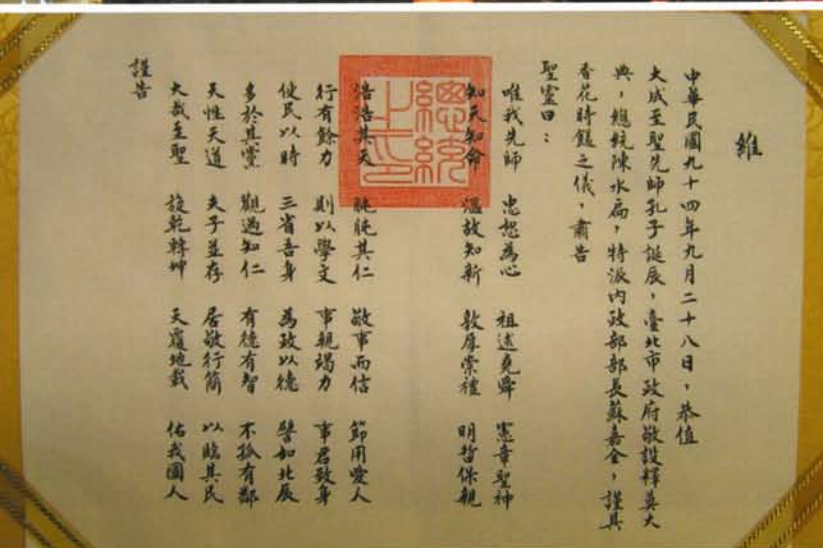 維
中華民國九十四年九月二十八日，恭值
大成至聖先師孔子誕辰，臺北市政府敬設釋奠大
典，總統陳水扁，特派內政部部長蘇嘉全，謹具
香花時饈之儀，肅告
聖靈曰：
唯我先師 忠恕為心 祖述堯舜 憲章聖神
知天知命 溫故知新 敦厚崇禮 明哲保親
浩浩其天 肫肫其仁 敬事而信 節用愛人
行有餘力 則以學文 事親竭力 事君致身
使民以時 三省吾身 為政以德 譬如北辰
多於其黨 觀過知仁 有德有智 不孤有鄰
天性天道 夫子並存 居敬行簡 以臨其民
大哉至聖 旋乾轉坤 天覆地載 佑我國人
謹告
總統之印